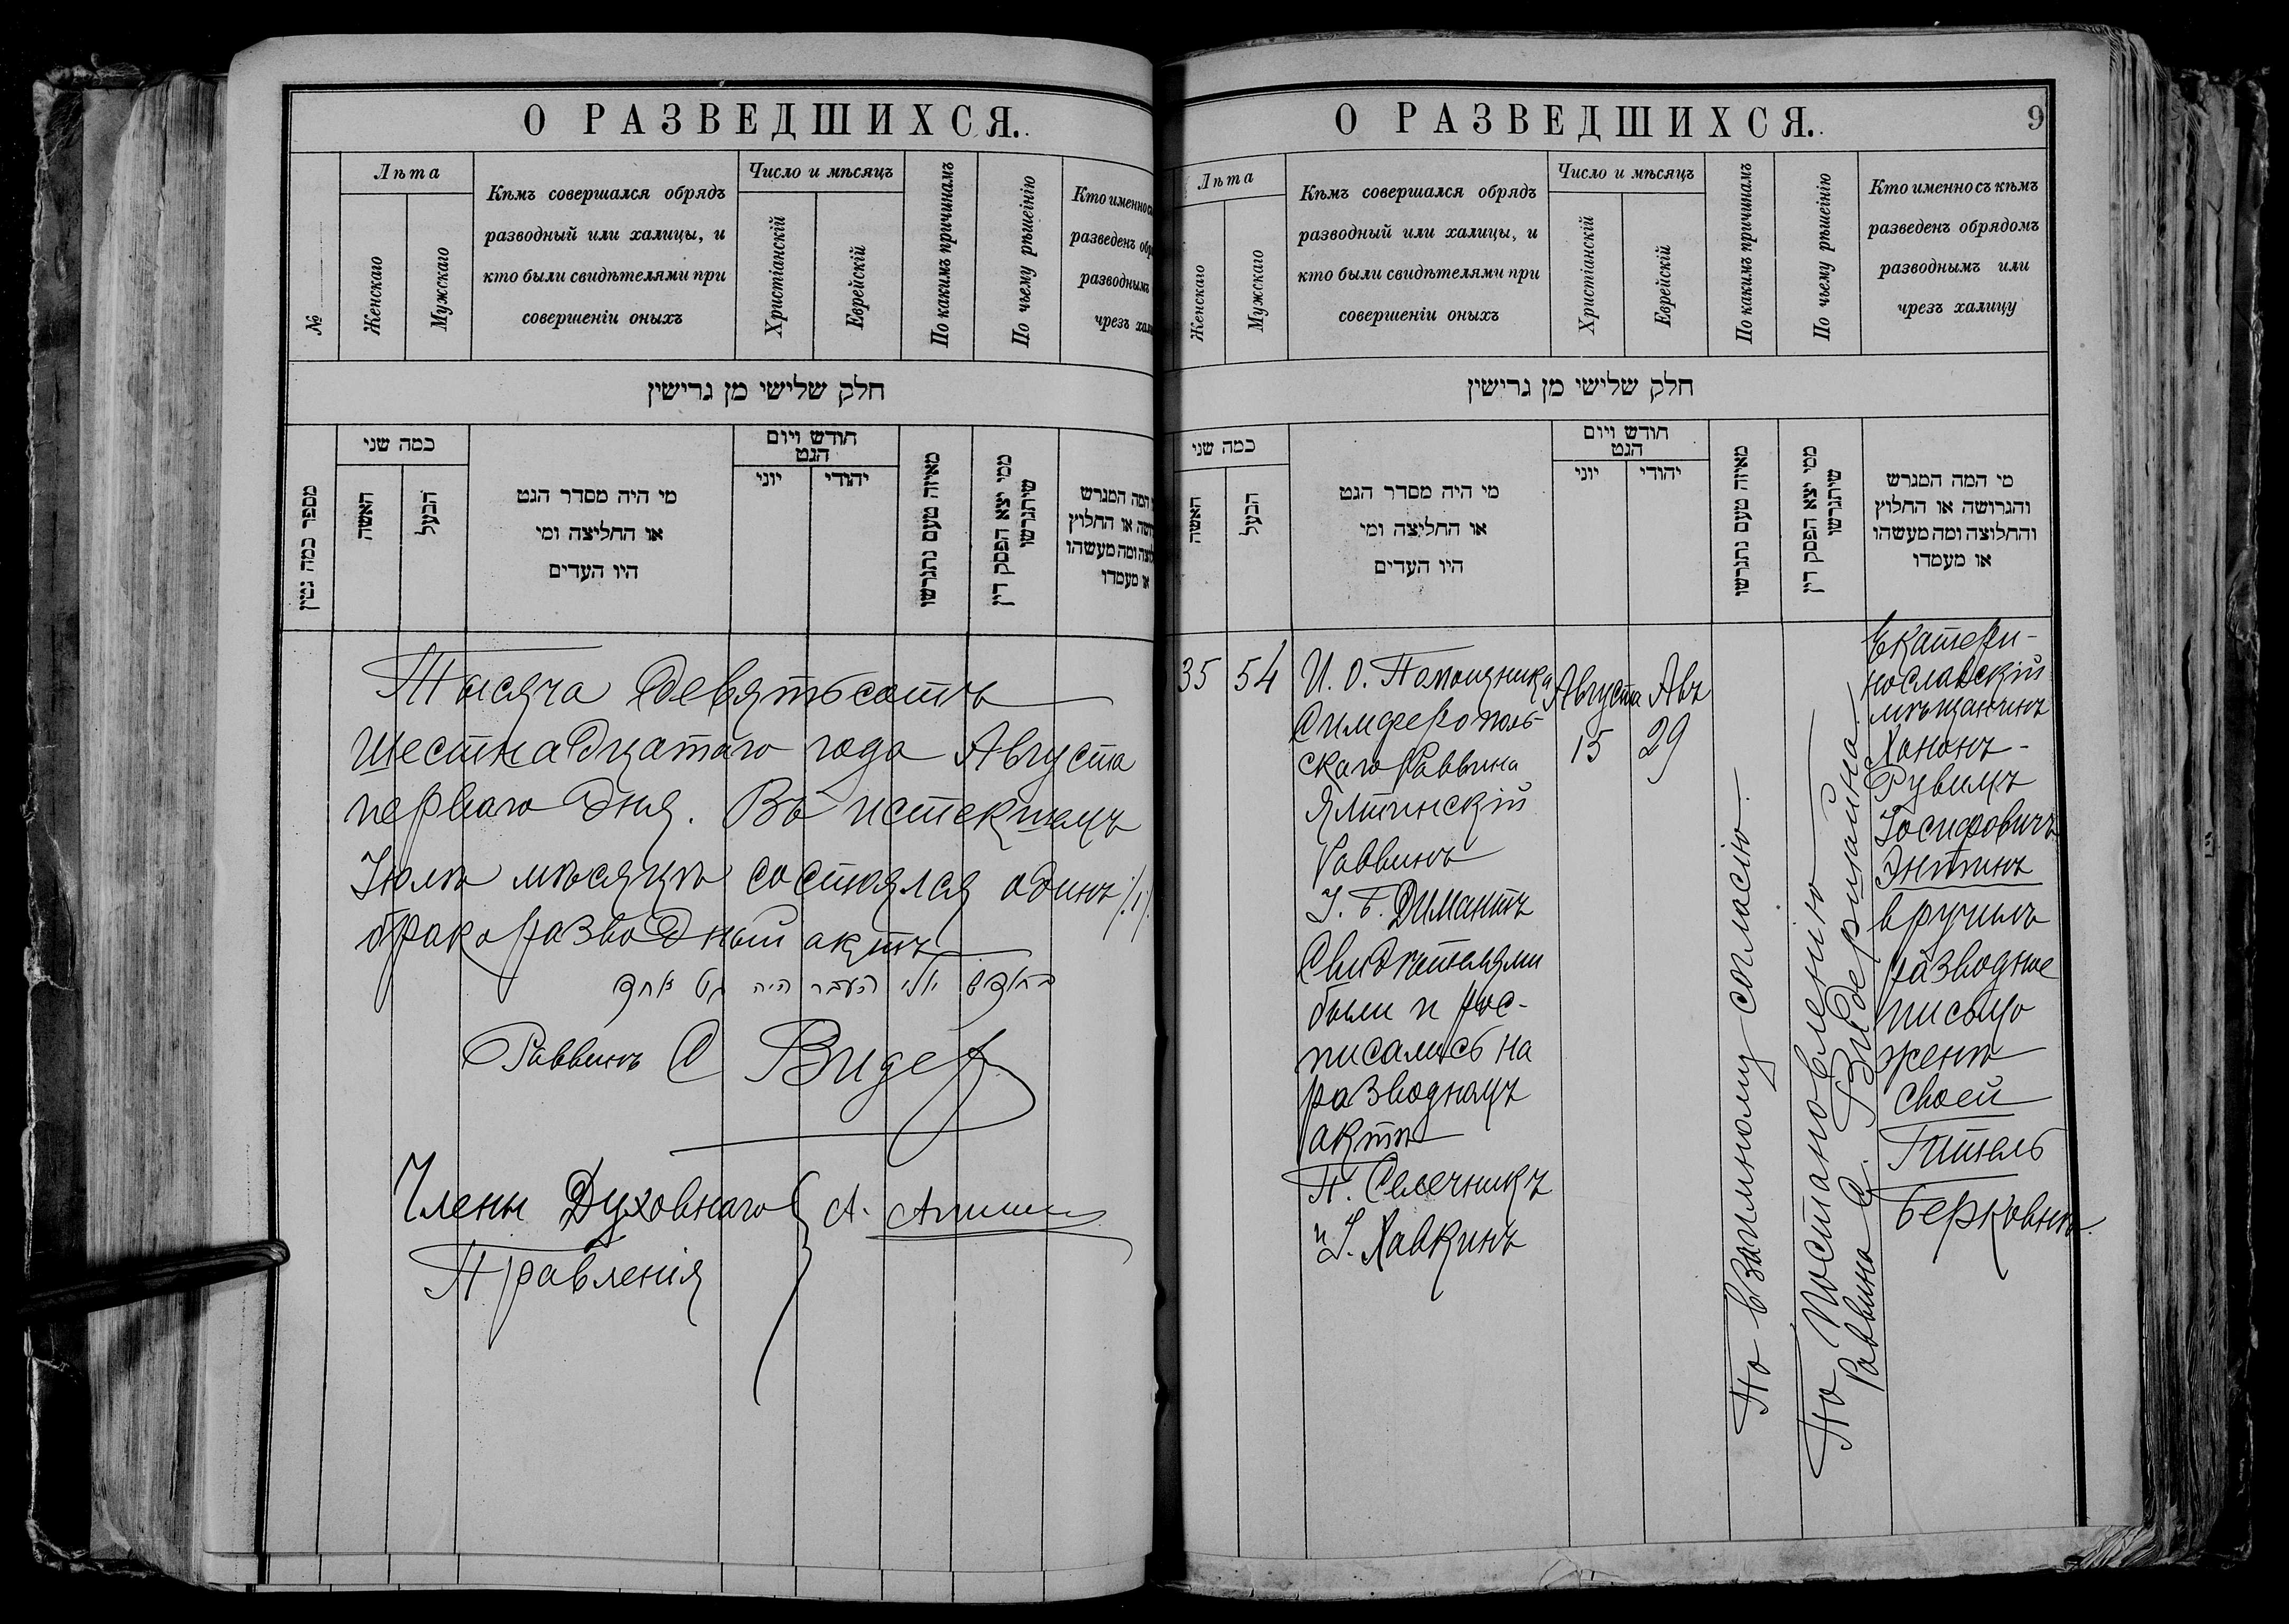 О РАЗВЕДШИХСЯ.
№
Лѣта
Женскаго
Мужскаго
Кѣмъ совершался обрядъ
разводный или халицы, и
кто были свидѣтелями при
совершеніи оныхъ
Число и мѣсяцъ
Христіанскій
Еврейскій
По какимъ причинамъ
По чьему рѣшеінію
Кто именно съ
разведенъ обр
разводнымъ
чрезъ хал
חלק שלישי מן גרישין
מספר כמה גטין
כמה שני
האשה
הבעל
מי היה מסדר הגט
או החליצה ומי
היו העדים
חודש ויום
הגט
יוני
יהודי
מאיזה טעם נתגרשו
ממי יצא הפסק דין
שיתגרשו
המה המגרש
או החלוץ
ומה מעשהו
או מעמדו
Тысяча девятьсотъ
шестнадцатаго года Августа
перваго дня. Въ истекшемъ
Іюлѣ мѣсяцѣ состоялся одинъ /1/
бракоразводный актъ
בחודש יולי העבר היה גט אחד
Раввинъ С Видер
Члены Духовнаго А.
Правленія
О РАЗВЕДШИХСЯ.
9
Лѣта
Женскаго
Мужскаго
Кѣмъ совершался обрядъ
разводный или халицы, и
кто были свидѣтелями при
совершеніи оныхъ
Число и мѣсяцъ
Христіанскій
Еврейскій
По какимъ причинамъ
По чьему рѣшеінію
Кто именно съ кѣмъ
разведенъ обрядомъ
разводнымъ или
чрезъ халицу
חלק שלישי מן גרישין
כמה שני
האשה
הבעל
מי היה מסדר הגט
או החליצה ומי
היו העדים
חודש ויום
הגט
יוני
יהודי
מאיזה טעם נתגרשו
ממי יצא הפסק דין
שיתגרשו
מי המה המגרש
והגרושה או החלוץ
והחלוצה ומה מעשהו
או מעמדו
35
54
И. О. Помощника
Симферополь-
скаго Раввина
Ялтинскій
Раввинъ
І. Б. Димантъ
Свидѣтелями
были и рос-
писались на
разводномъ
актѣ
П. Селечникъ
и І. Хавкинъ
Августа
15
Авъ
29
По взаимному согласію.
По постановленію
Раввина С. Видеришайна.
Екатери-
нославскій
мѣщанинъ
Хононъ-
Рувимъ
Іосифовичъ
Энтинъ
вручилъ
разводное
письмо
женѣ
своей
Гитель
Берковнѣ.